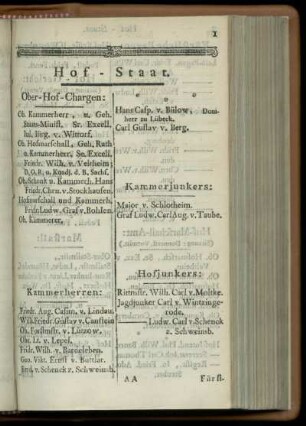 1
Hof-Staat.
Ober-Hof-Chargen:
Ob. Kammerherr, u. Geh.
Staats-Minist. Sr. Excell.
Jul. Frg. v. Wittorf.
Ob. Hofmarschall, Geh. Rath
u. Kammerherr, Se. Excell.
Friedr. Wilh. v. Veltheim;
Ob. Schenk u. Kammerh. Hans
Friedr. Chrn. v. Stockhausen.
Hofmarschall und Kammerh.
Frdr. Ludw. Graf v. Bohlen
Ob. Kämmerer.
Kammerherren:
Friedr. Aug. Casim. v. Lindau,
Wilh. Fridr. Gustav v. Canstein
Ob. Forstmstr. v. Lützow,
Ob. Lt. v. Lepel,
Friedr. Wilh. v. Barneleben.
Geo. Vikt. Ernst v. Buttlar.
v. Schenck z. Schweinsb.
Hans Casp. v. Bülow, Dom-
herr zu Lübeck.
Carl Gustav v. Berg.
Kammerjunkers:
Major v. Schlotheim.
Graf Ludw. Carl Aug. v. Taube.
Hofjunkers:
Rittmstr. Wilh. Carl v. Moltke.
Jagdjunker Carl v. Wintzinge-
rode.
Ludw. Carl v. Schenck
z. Schweinsb.
AA
Fürstl.